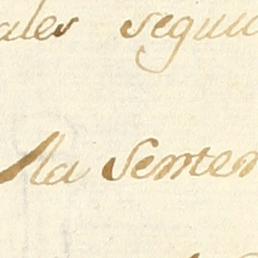 ales segui
la senten